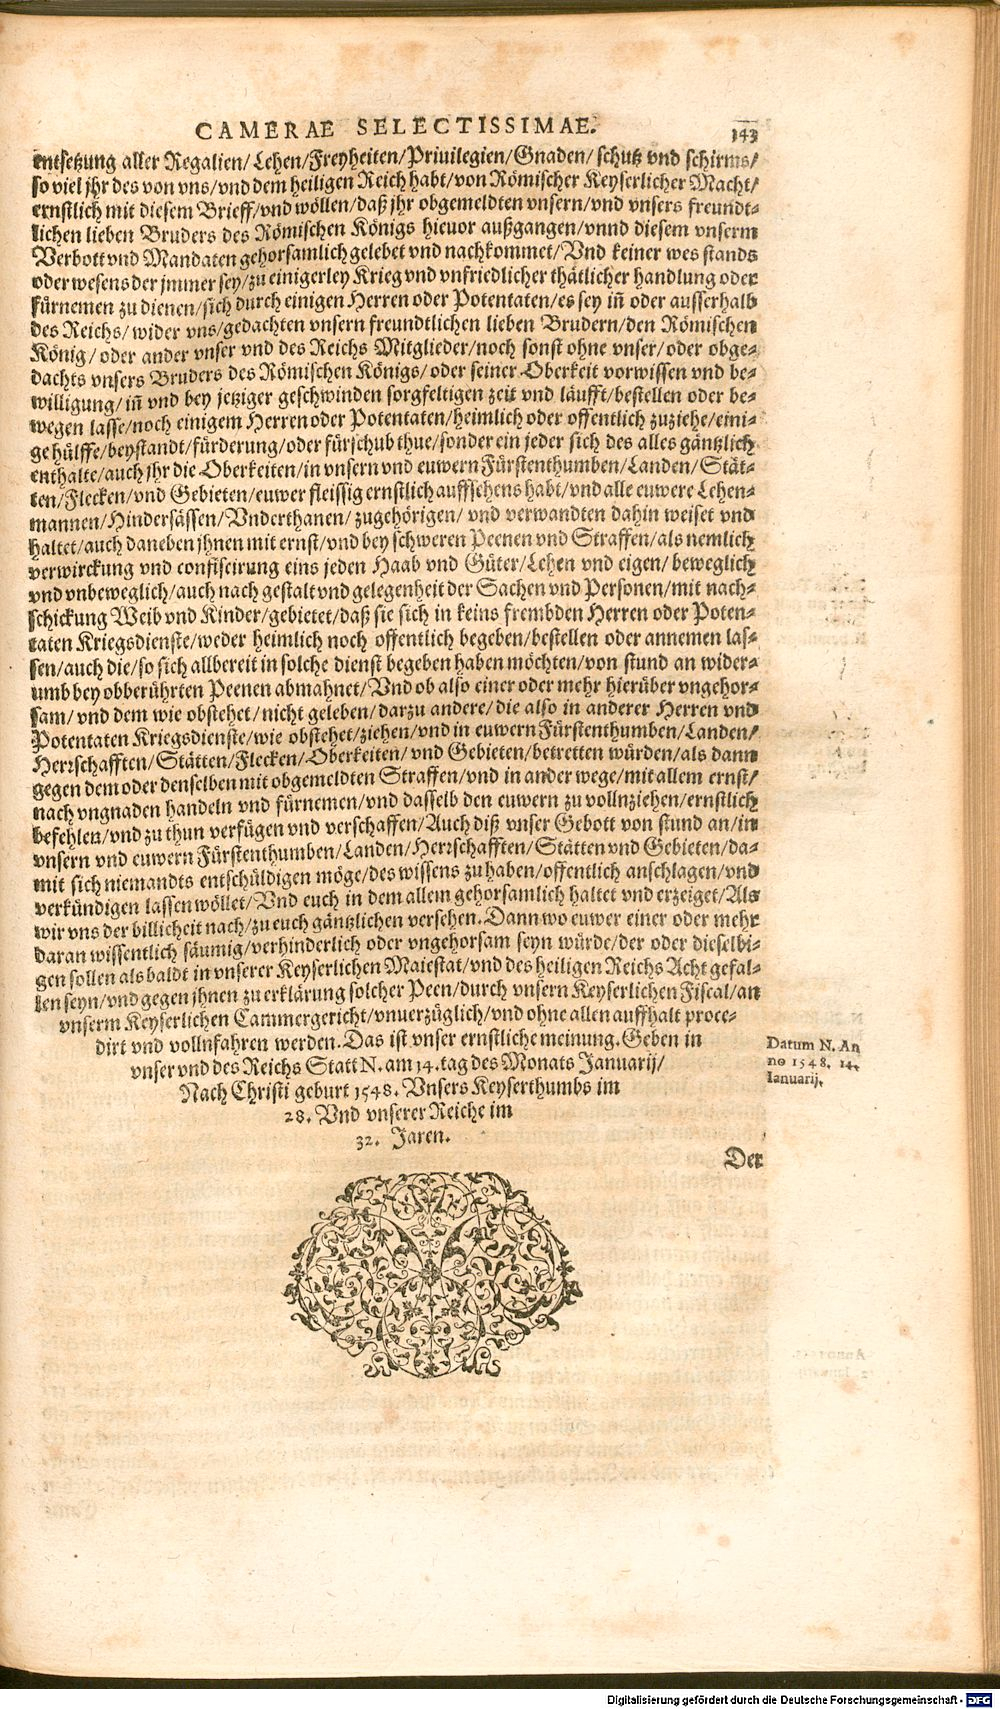 CAMERAE SELECTISSIMAE.
143
entsetzung aller Regalien/ Lehen/Freyheiten/Priuilegien/Gnaden/ schutz vnd schirms/
so viel jhr des von vns/vnd dem heiligen Reich habt/von Römischer Keyserlicher Macht/
ernstlich mit diesem Brieff/vnd wöllen/daß jhr obgemeldten vnsern/vnd vnsers freundt-
lichen lieben Bruders des Römischen Königs hieuor außgangen/vnnd diesem vnserm
Verbott vnd Mandaten gehorsamlich gelebet vnd nachkommet/Vnd keiner wes stands
oder wesens der jmmer sey/zu einigerley Krieg vnd vnfriedlicher thätlicher handlung oder
fürnemen zu dienen/sich durch einigen Herren oder Potentaten/es sey iñ oder ausserhalb
des Reichs/wider vns/gedachten vnsern freundtlichen lieben Brudern/den Römischen
König/oder ander vnser vnd des Reichs Mitglieder/noch sonst ohne vnser/oder obge-
dachts vnsers Bruders des Römischen Königs/oder seiner Oberkeit vorwissen vnd be-
willigung/iñ vnd bey jetziger geschwinden sorgfeltigen zeit vnd läufft/bestellen oder be-
wegen lasse/noch einigem Herren oder Potentaten/heimlich oder offentlich zuziehe/eini-
ge hülffe/beystandt/fürderung/oder fürschub thue/sonder ein jeder sich des alles gäntzlich
enthalte/auch jhr die Oberkeiten/in vnsern vnd euwern Fürstenthumben/Landen/Stät-
ten/Flecken/vnd Gebieten/euwer fleissig ernstlich auffsehens habt/vnd alle euwere Lehen-
mannen/Hindersässen/Vnderthanen/zugehörigen/vnd verwandten dahin weiset vnd
haltet/auch daneben jhnen mit ernst/vnd bey schweren Peenen vnd Straffen/als nemlich
verwirckung vnd confiscirung eins jeden Haab vnd Güter/Lehen vnd eigen/beweglich
vnd vnbeweglich/auch nach gestalt vnd gelegenheit der Sachen vnd Personen/mit nach-
schickung Weib vnd Kinder/gebietet/daß sie sich in keins frembden Herren oder Poten-
taten Kriegsdienste/weder heimlich noch offentlich begeben/bestellen oder annemen las-
sen/auch die/so sich allbereit in solche dienst begeben haben möchten/von stund an wider-
umb bey obberührten Peenen abmahnet/Vnd ob also einer oder mehr hierüber vngehor-
sam/vnd dem wie obstehet/nicht geleben/darzu andere/die also in anderer Herren vnd
Potentaten Kriegsdienste/wie obstehet/ziehen/vnd in euwern Fürstenthumben/Landen/
Herrschafften/Stätten/Flecken/Oberkeiten/vnd Gebieten/betretten würden/als dann
gegen dem oder denselben mit obgemeldten Straffen/vnd in ander wege/mit allem ernst/
nach vngnaden handeln vnd fürnemen/vnd dasselb den euwern zu vollnziehen/ernstlich
befehlen/vnd zu thun verfügen vnd verschaffen/Auch diß vnser Gebott von stund an/in
vnsern vnd euwern Fürstenthumben/Landen/Herrschafften/Stätten vnd Gebieten/da-
mit sich niemandts entschüldigen möge/des wissens zu haben/offentlich anschlagen/vnd
verkündigen lassen wöllet/Vnd euch in dem allem gehorsamlich haltet vnd erzeiget/Als
wir vns der billicheit nach/zu euch gäntzlichen versehen. Dann wo euwer einer oder mehr
daran wissentlich säumig/verhinderlich oder vngehorsam seyn würde/der oder dieselbi-
gen sollen als baldt in vnserer Keyserlichen Maiestat/vnd des heiligen Reichs Acht gefal-
len seyn/vnd gegen jhnen zu erklärung solcher Peen/durch vnsern Keyserlichen Fiscal/an
vnserm Keyserlichen Cammergericht/vnuerzüglich/vnd ohne allen auffhalt proce-
dirt vnd vollnfahren werden. Das ist vnser ernstliche meinung. Geben in
vnser vnd des Reichs Statt N. am 14. tag des Monats Januarij/
Nach Christi geburt 1548. Vnsers Keyserthumbs im
28. Vnd vnserer Reiche im
32. Jaren.
Datum N. An
no 1548. 14.
Ianuarij.
Der
Digitalisierung gefördert durch die Deutsche Forschungsgemeinschaft - DFG